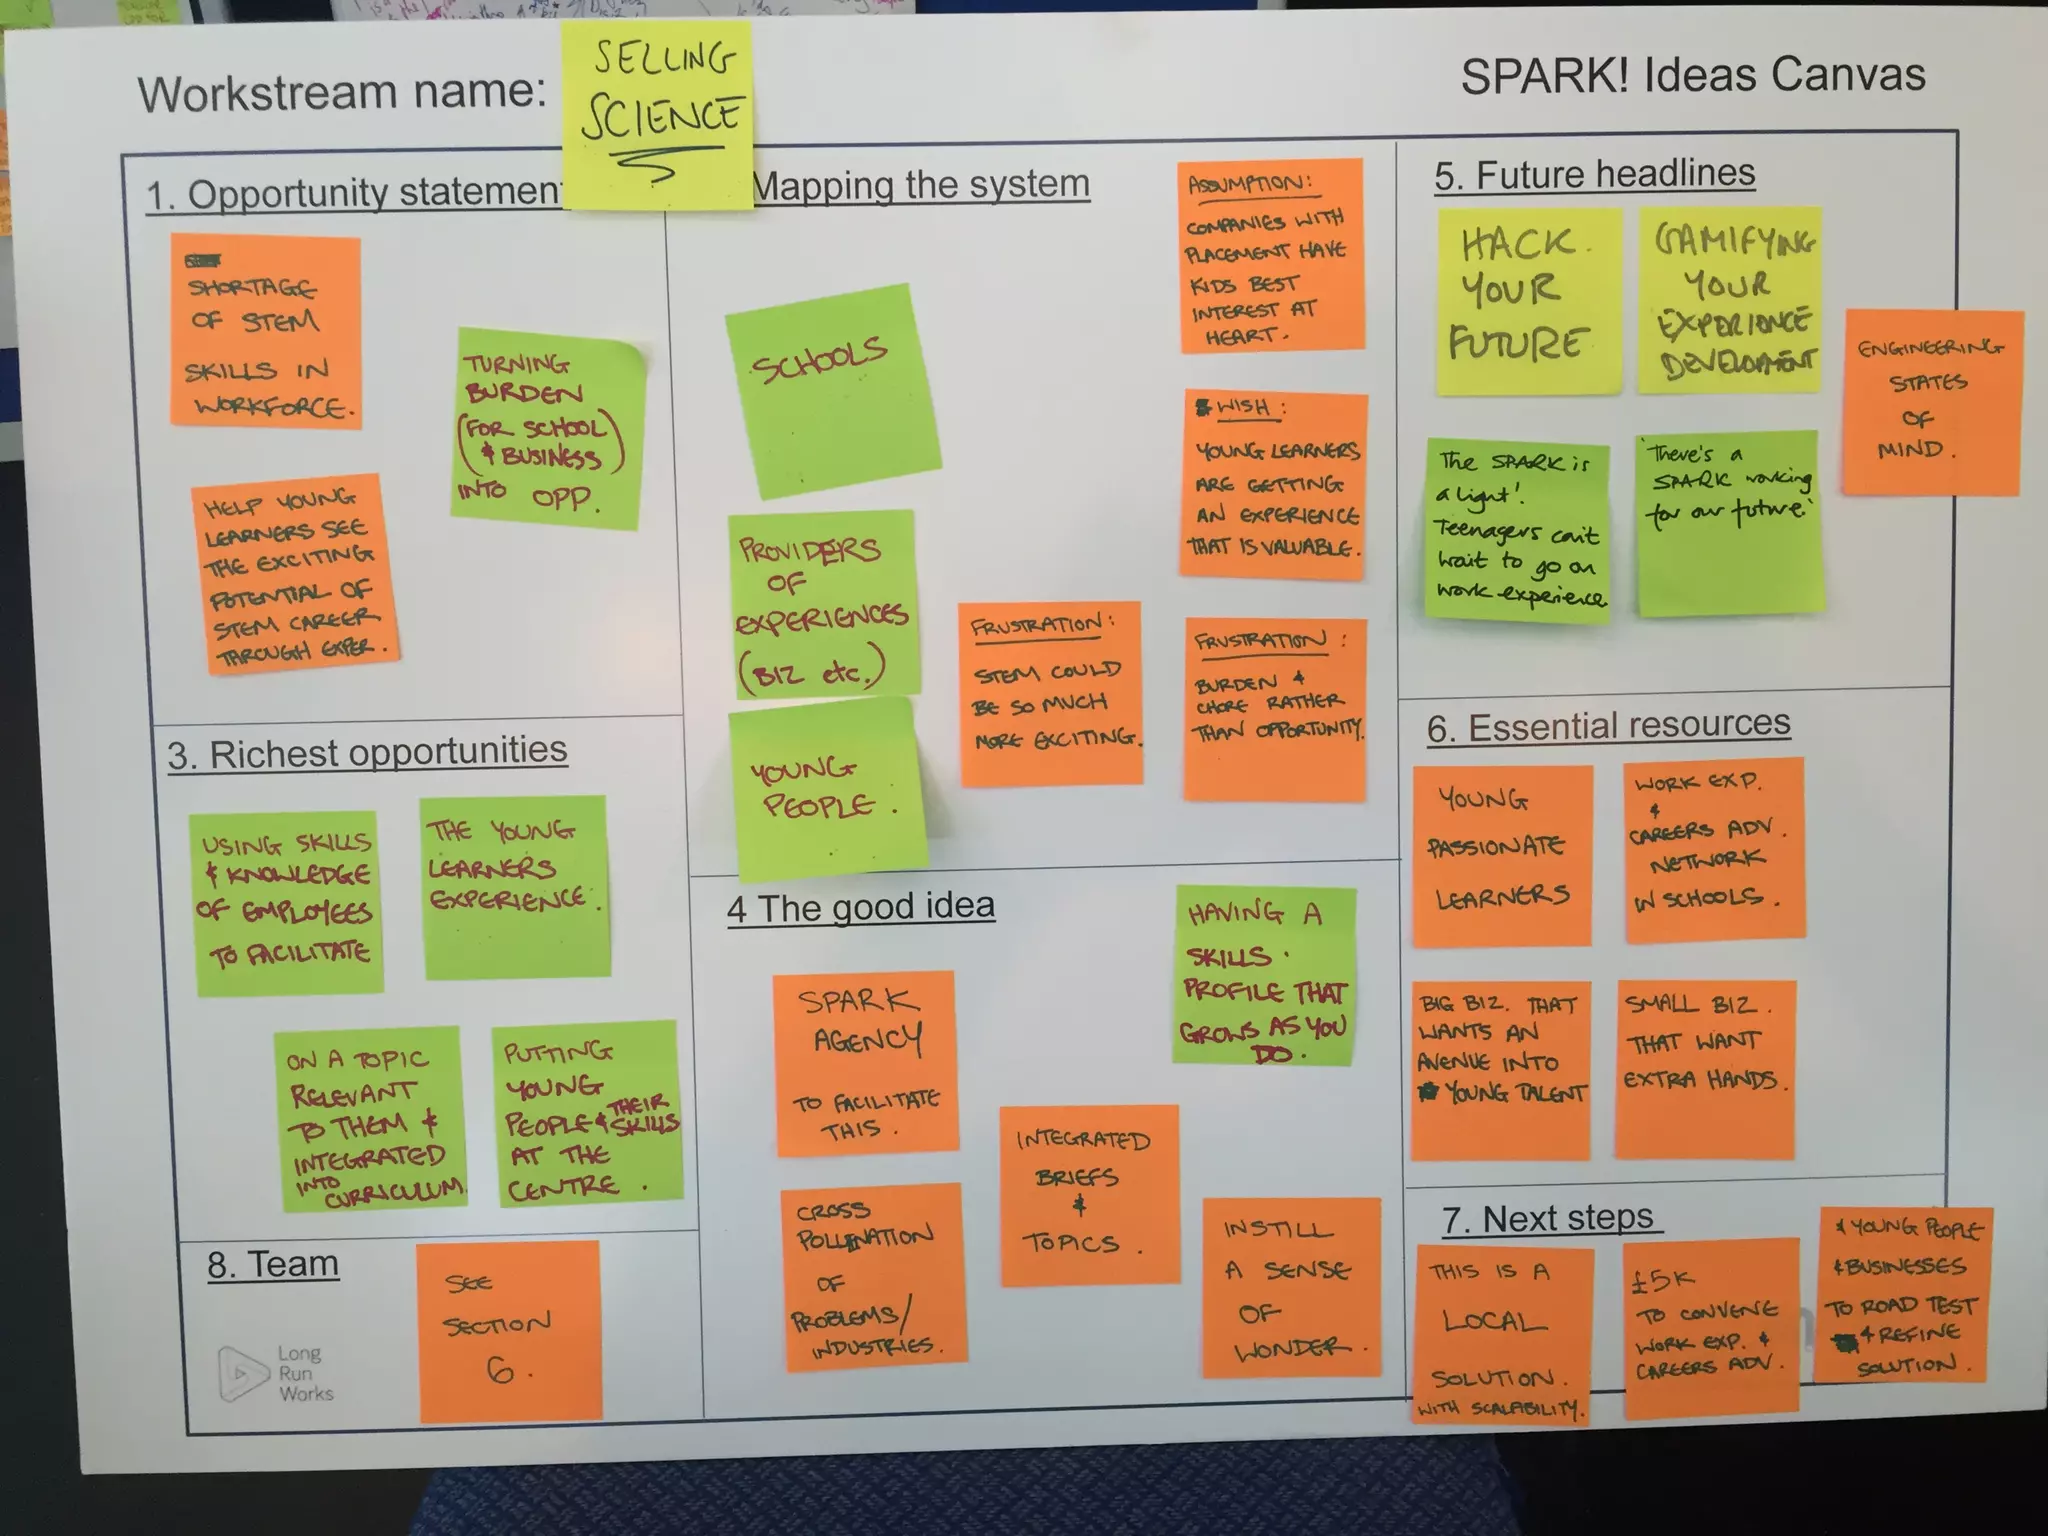 Workstream name:
SELLING
SCIENCE
SPARK! Ideas Canvas
1. Opportunity statement
SHORTAGE
OF STEM
SKILLS IN
WORKFORCE.
TURNING
BURDEN
(FOR SCHOOL)
& BUSINESS
INTO OPP.
HELP YOUNG
LEARNERS SEE
THE EXCITING
POTENTIAL OF
STEM CAREER
THROUGH EXPER.
Mapping the system
SCHOOLS
PROVIDERS
OF
EXPERIENCES
(BIZ etc.)
YOUNG
PEOPLE.
ASSUMPTION:
COMPANIES WITH
PLACEMENT HAVE
KIDS BEST
INTEREST AT
HEART.
WISH:
YOUNG LEARNERS
ARE GETTING
AN EXPERIENCE
THAT IS VALUABLE.
FRUSTRATION:
STEM COULD
BE SO MUCH
MORE EXCITING.
FRUSTRATION:
BURDEN &
CHORE RATHER
THAN OPPORTUNITY.
3. Richest opportunities
USING SKILLS
& KNOWLEDGE
OF EMPLOYEES
TO FACILITATE
THE YOUNG
LEARNERS
EXPERIENCE.
ON A TOPIC
RELEVANT
TO THEM &
INTEGRATED
INTO
CURRICULUM.
PUTTING
YOUNG
PEOPLE & THEIR
SKILLS
AT THE
CENTRE.
4 The good idea
HAVING A
SKILLS
PROFILE THAT
GROWS AS YOU
DO.
SPARK
AGENCY
TO FACILITATE
THIS.
INTEGRATED
BRIEFS
&
TOPICS.
CROSS
POLLINATION
OF
PROBLEMS/
INDUSTRIES.
INSTILL
A SENSE
OF
WONDER.
5. Future headlines
HACK
YOUR
FUTURE
GAMIFYING
YOUR
EXPERIENCE
DEVELOPMENT
ENGINEERING
STATES
OF
MIND.
The SPARK is
a light!
Teenagers can't
wait to go on
work experience
'There's a
SPARK working
for our future.'
6. Essential resources
YOUNG
PASSIONATE
LEARNERS
WORK EXP.
&
CAREERS ADV.
NETWORK
IN SCHOOLS.
BIG BIZ. THAT
WANTS AN
AVENUE INTO
YOUNG TALENT
SMALL BIZ.
THAT WANT
EXTRA HANDS.
7. Next steps
THIS IS A
LOCAL
SOLUTION.
WITH SCALABILITY.
£5K
TO CONVENE
WORK EXP. &
CAREERS ADV.
& YOUNG PEOPLE
& BUSINESSES
TO ROAD TEST
& REFINE
SOLUTION.
8. Team
SEE
SECTION
6.
Long
Run
Works